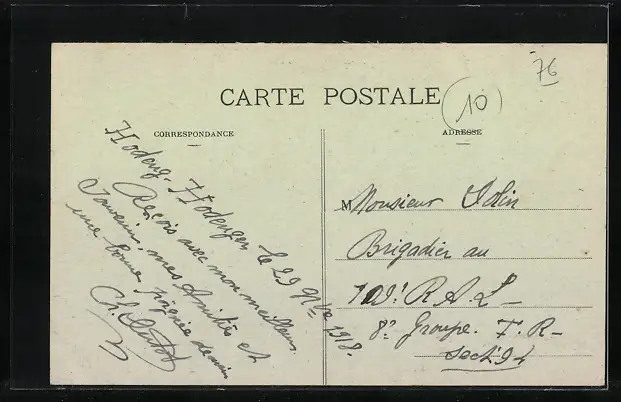 76
CARTE POSTALE
10
CORRESPONDANCE
ADRESSE
Hodeng-Hodenger, le 29 9bre 1918.
Reçois avec mon meilleur
souvenir, mes Amitiés et
une bonne poignée de main
Ch.
M Monsieur Odin
Brigadier au
R. A. L.
8e Groupe. T. R
Sect.